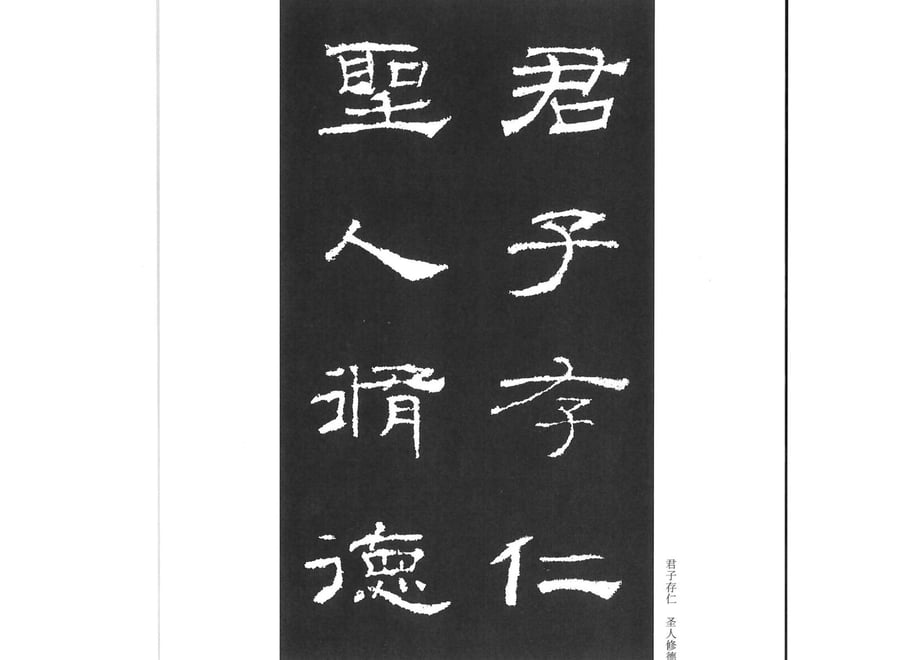 君子存仁
聖人脩德
君子存仁　圣人修德